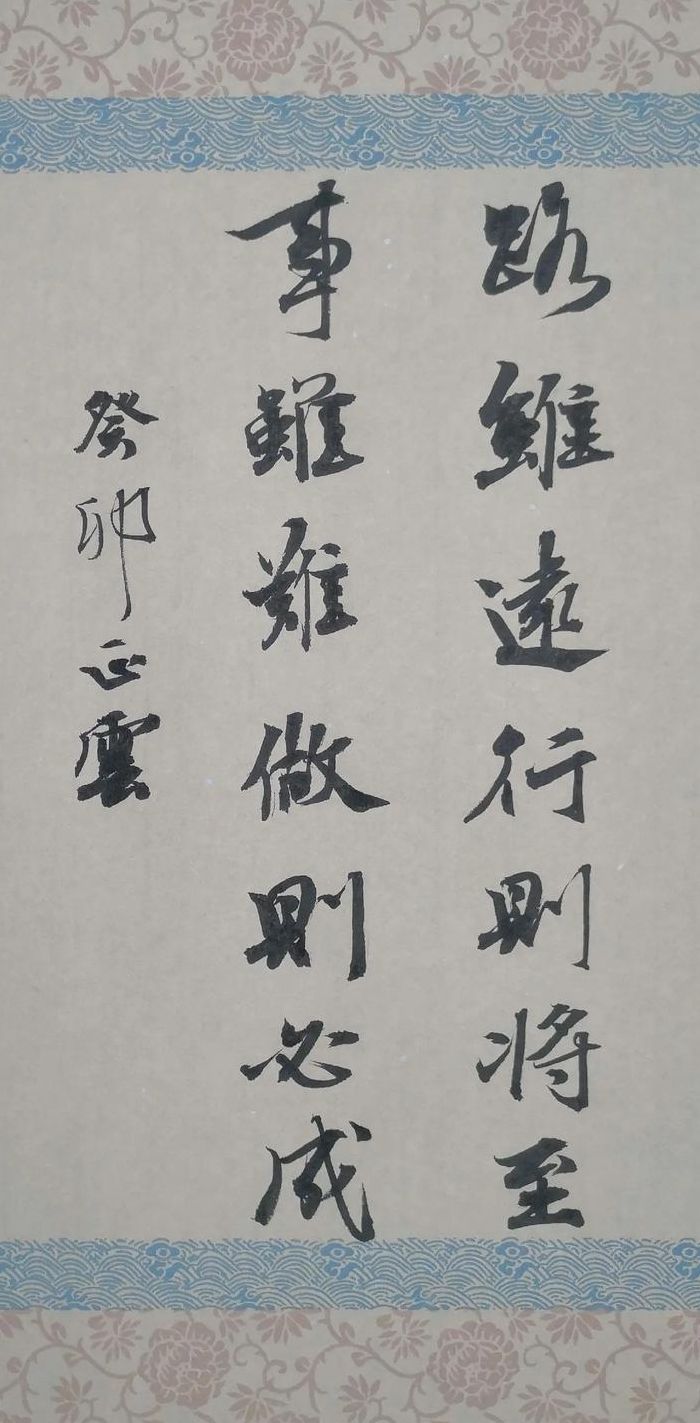 路雖遠行則将至
事雖難做則必成
癸卯正雲